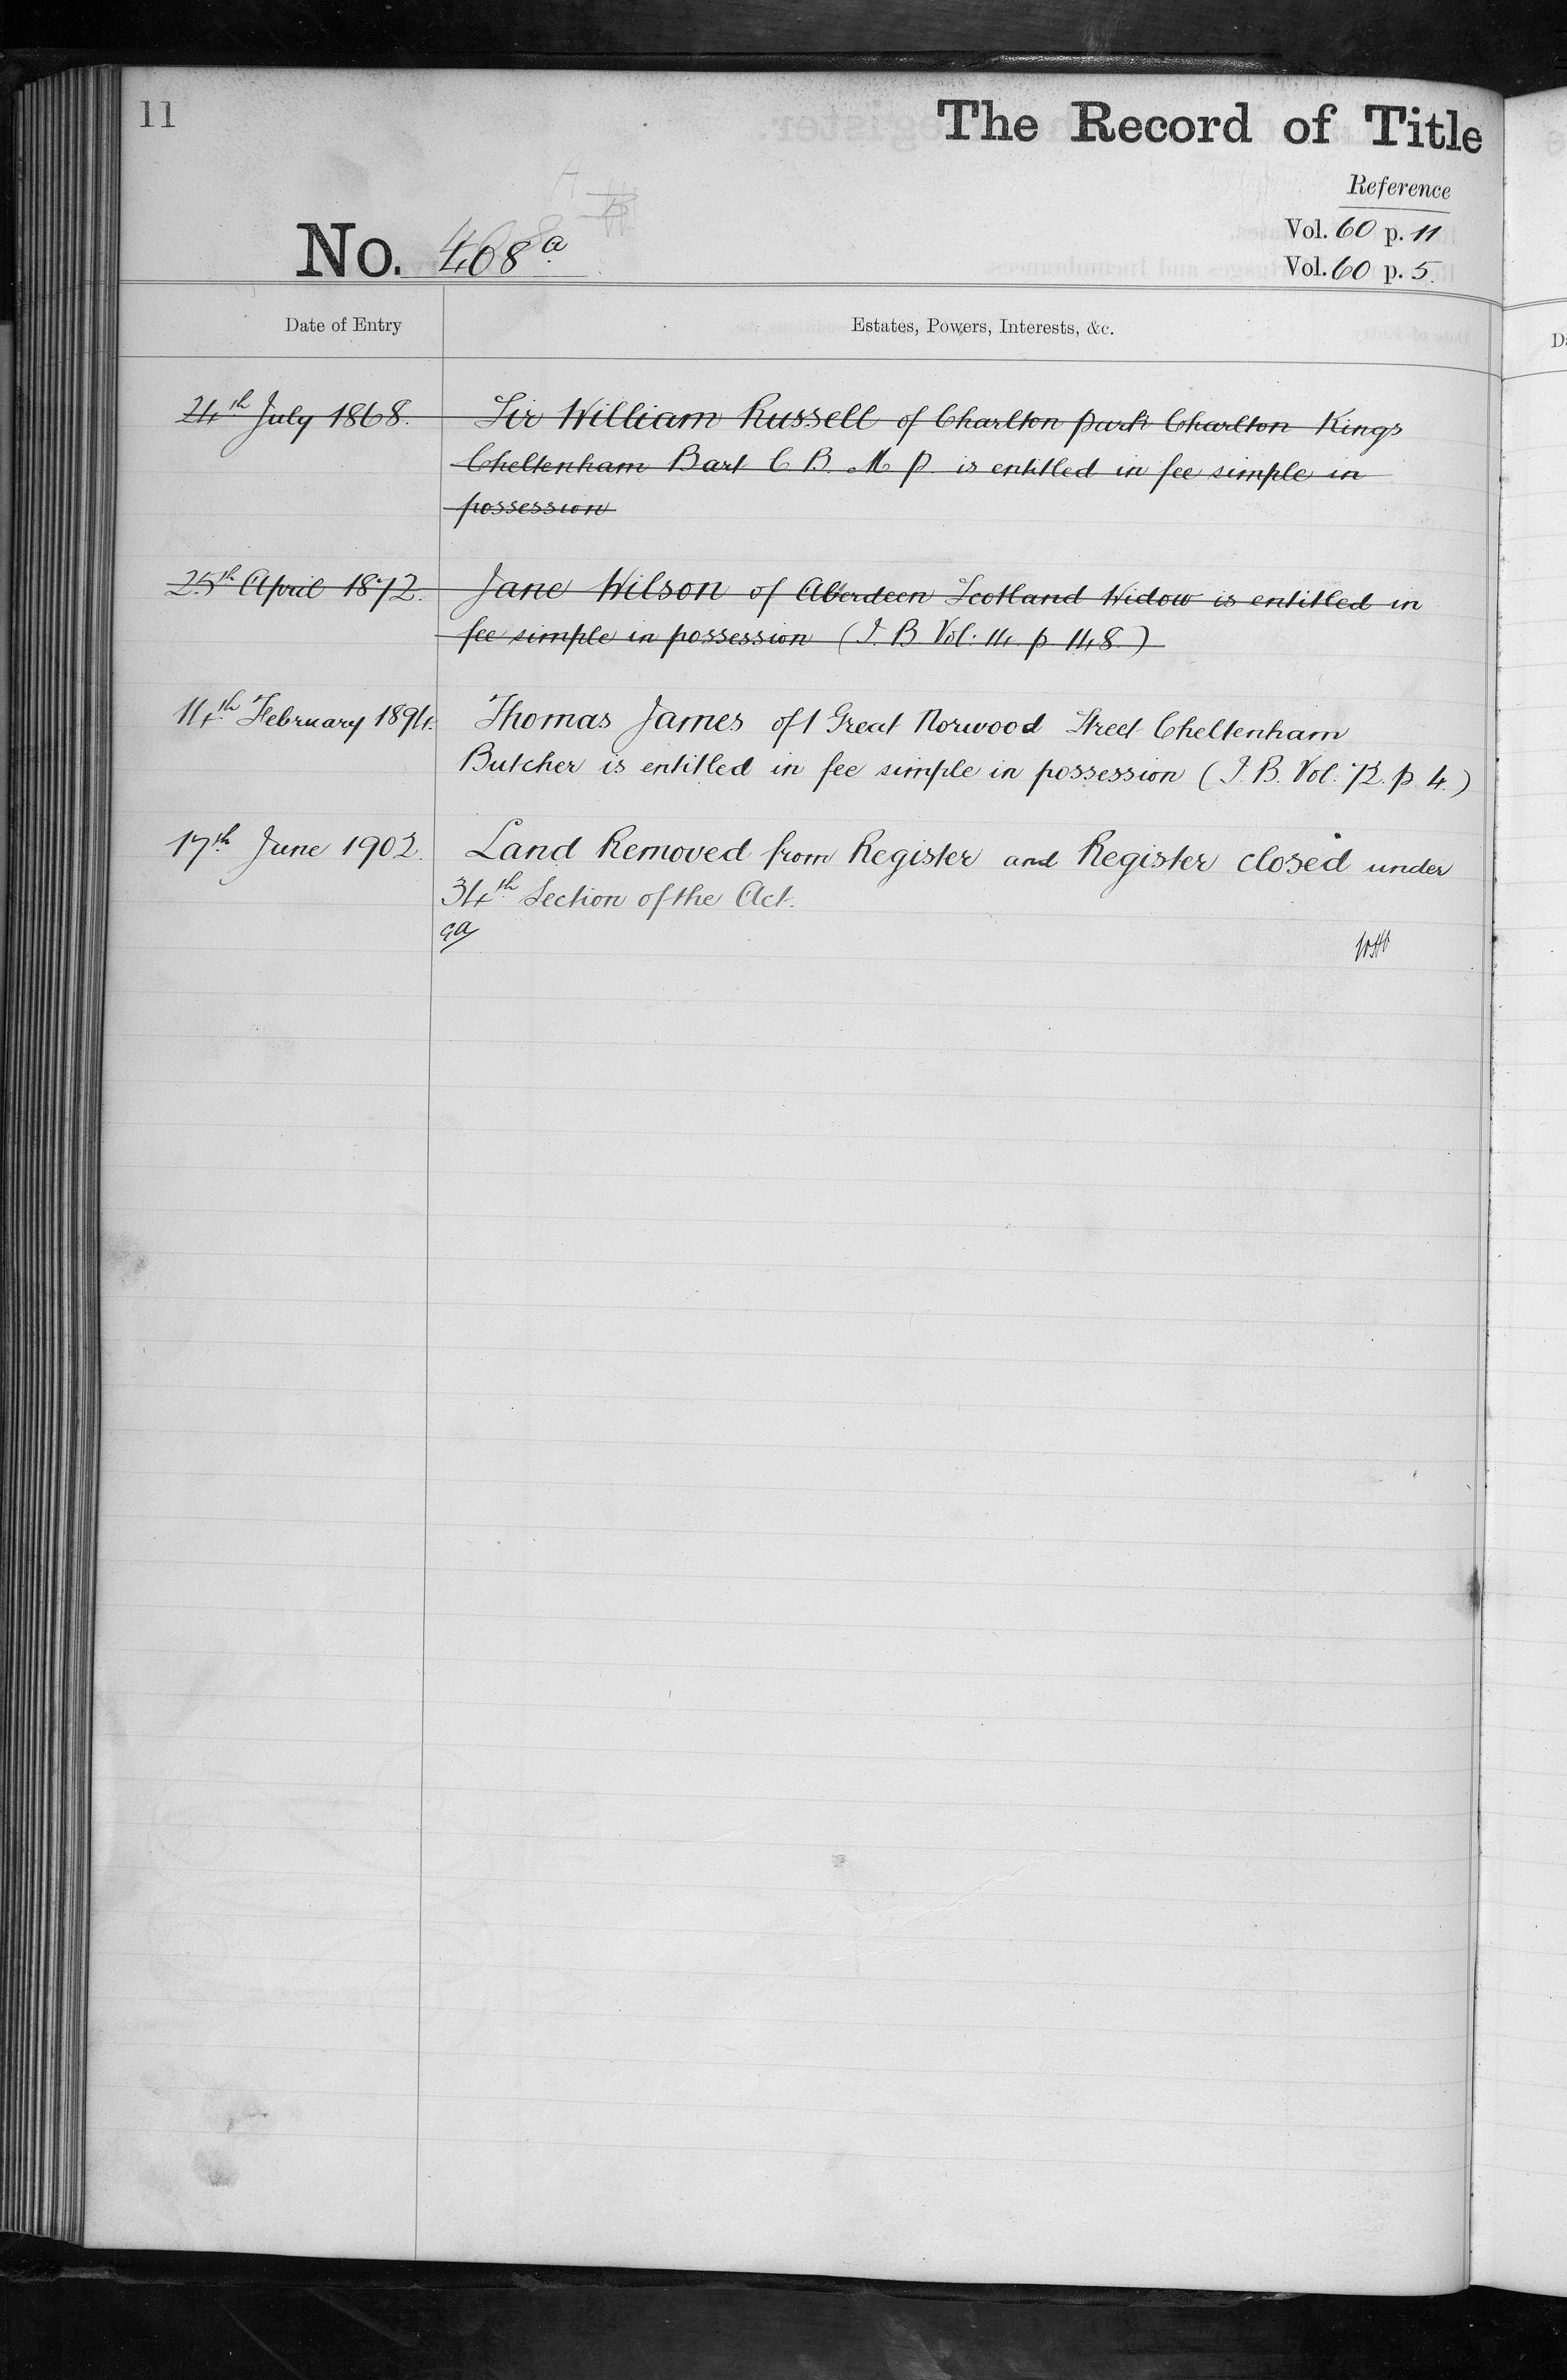 11
The Record of Title
Reference
No. 408a
Vol. 60 p. 11
Vol. 60 p. 5.
Date of Entry
Estates, Powers, Interests, &c.
24th July 1868. Sir William Russell of Charlton park Charlton Kings
Cheltenham Bart C B. M P. is entitled in fee simple in
possession
25th April 1872. Jane Wilson of Aberdeen Scotland Widow is entitled in
fee simple in possession (I. B Vol. 14 p 148.)
14th February 1894. Thomas James of 1 Great Norwood Street Cheltenham
Butcher is entitled in fee simple in possession (I. B. Vol. 72. p. 4.)
17th June 1902. Land Removed from Register and Register closed under
34th Section of the Act.